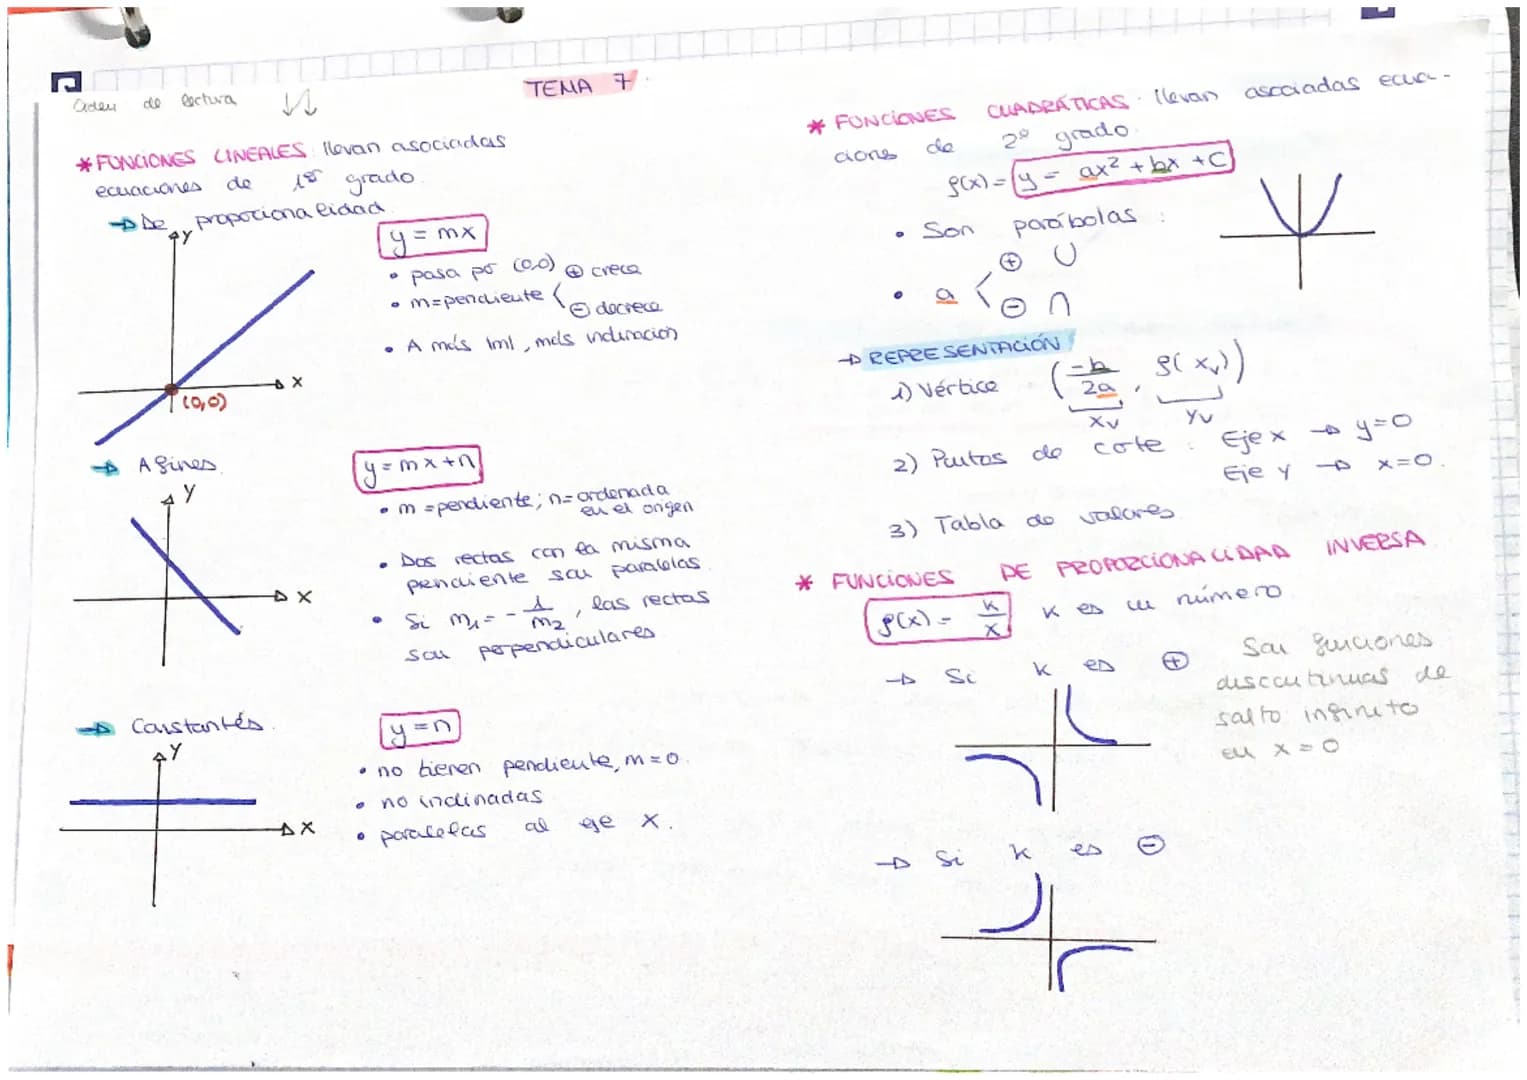 TEMA 7
Orden de lectura ↓↓
* FUNCIONES LINEALES: llevan asociadas
ecuaciones de 1er grado.
→ De proporcionalidad.
y = mx
• pasa por (0,0)
• m=pendiente < ⊕ crece
⊖ decrece
• A más |m|, más inclinación
Y
X
(0,0)
→ Afines.
y = mx+n
• m = pendiente; n= ordenada
en el origen
• Dos rectas con la misma
pendiente son paralelas.
• Si m₁ = - 1/m₂, las rectas
son perpendiculares
Y
X
→ Constantes.
y = n
• no tienen pendiente, m=0.
• no inclinadas
• paralelas al eje X.
Y
X
* FUNCIONES CUADRÁTICAS: llevan asociadas ecua-
cions de 2º grado.
f(x) = y = ax² + bx + C
• Son parábolas:
• a < ⊕ ∪
⊖ ∩
→ REPRESENTACIÓN
1) Vértice (-b/2a, f(xᵥ))
xᵥ yᵥ
2) Puntos de corte: Eje x → y=0
Eje y → x=0.
3) Tabla de valores.
* FUNCIONES DE PROPORCIONALIDAD INVERSA
f(x) = K/X K es un número.
→ Si K es ⊕
Son funciones
discontinuas de
salto infinito
en x = 0
→ Si K es ⊖